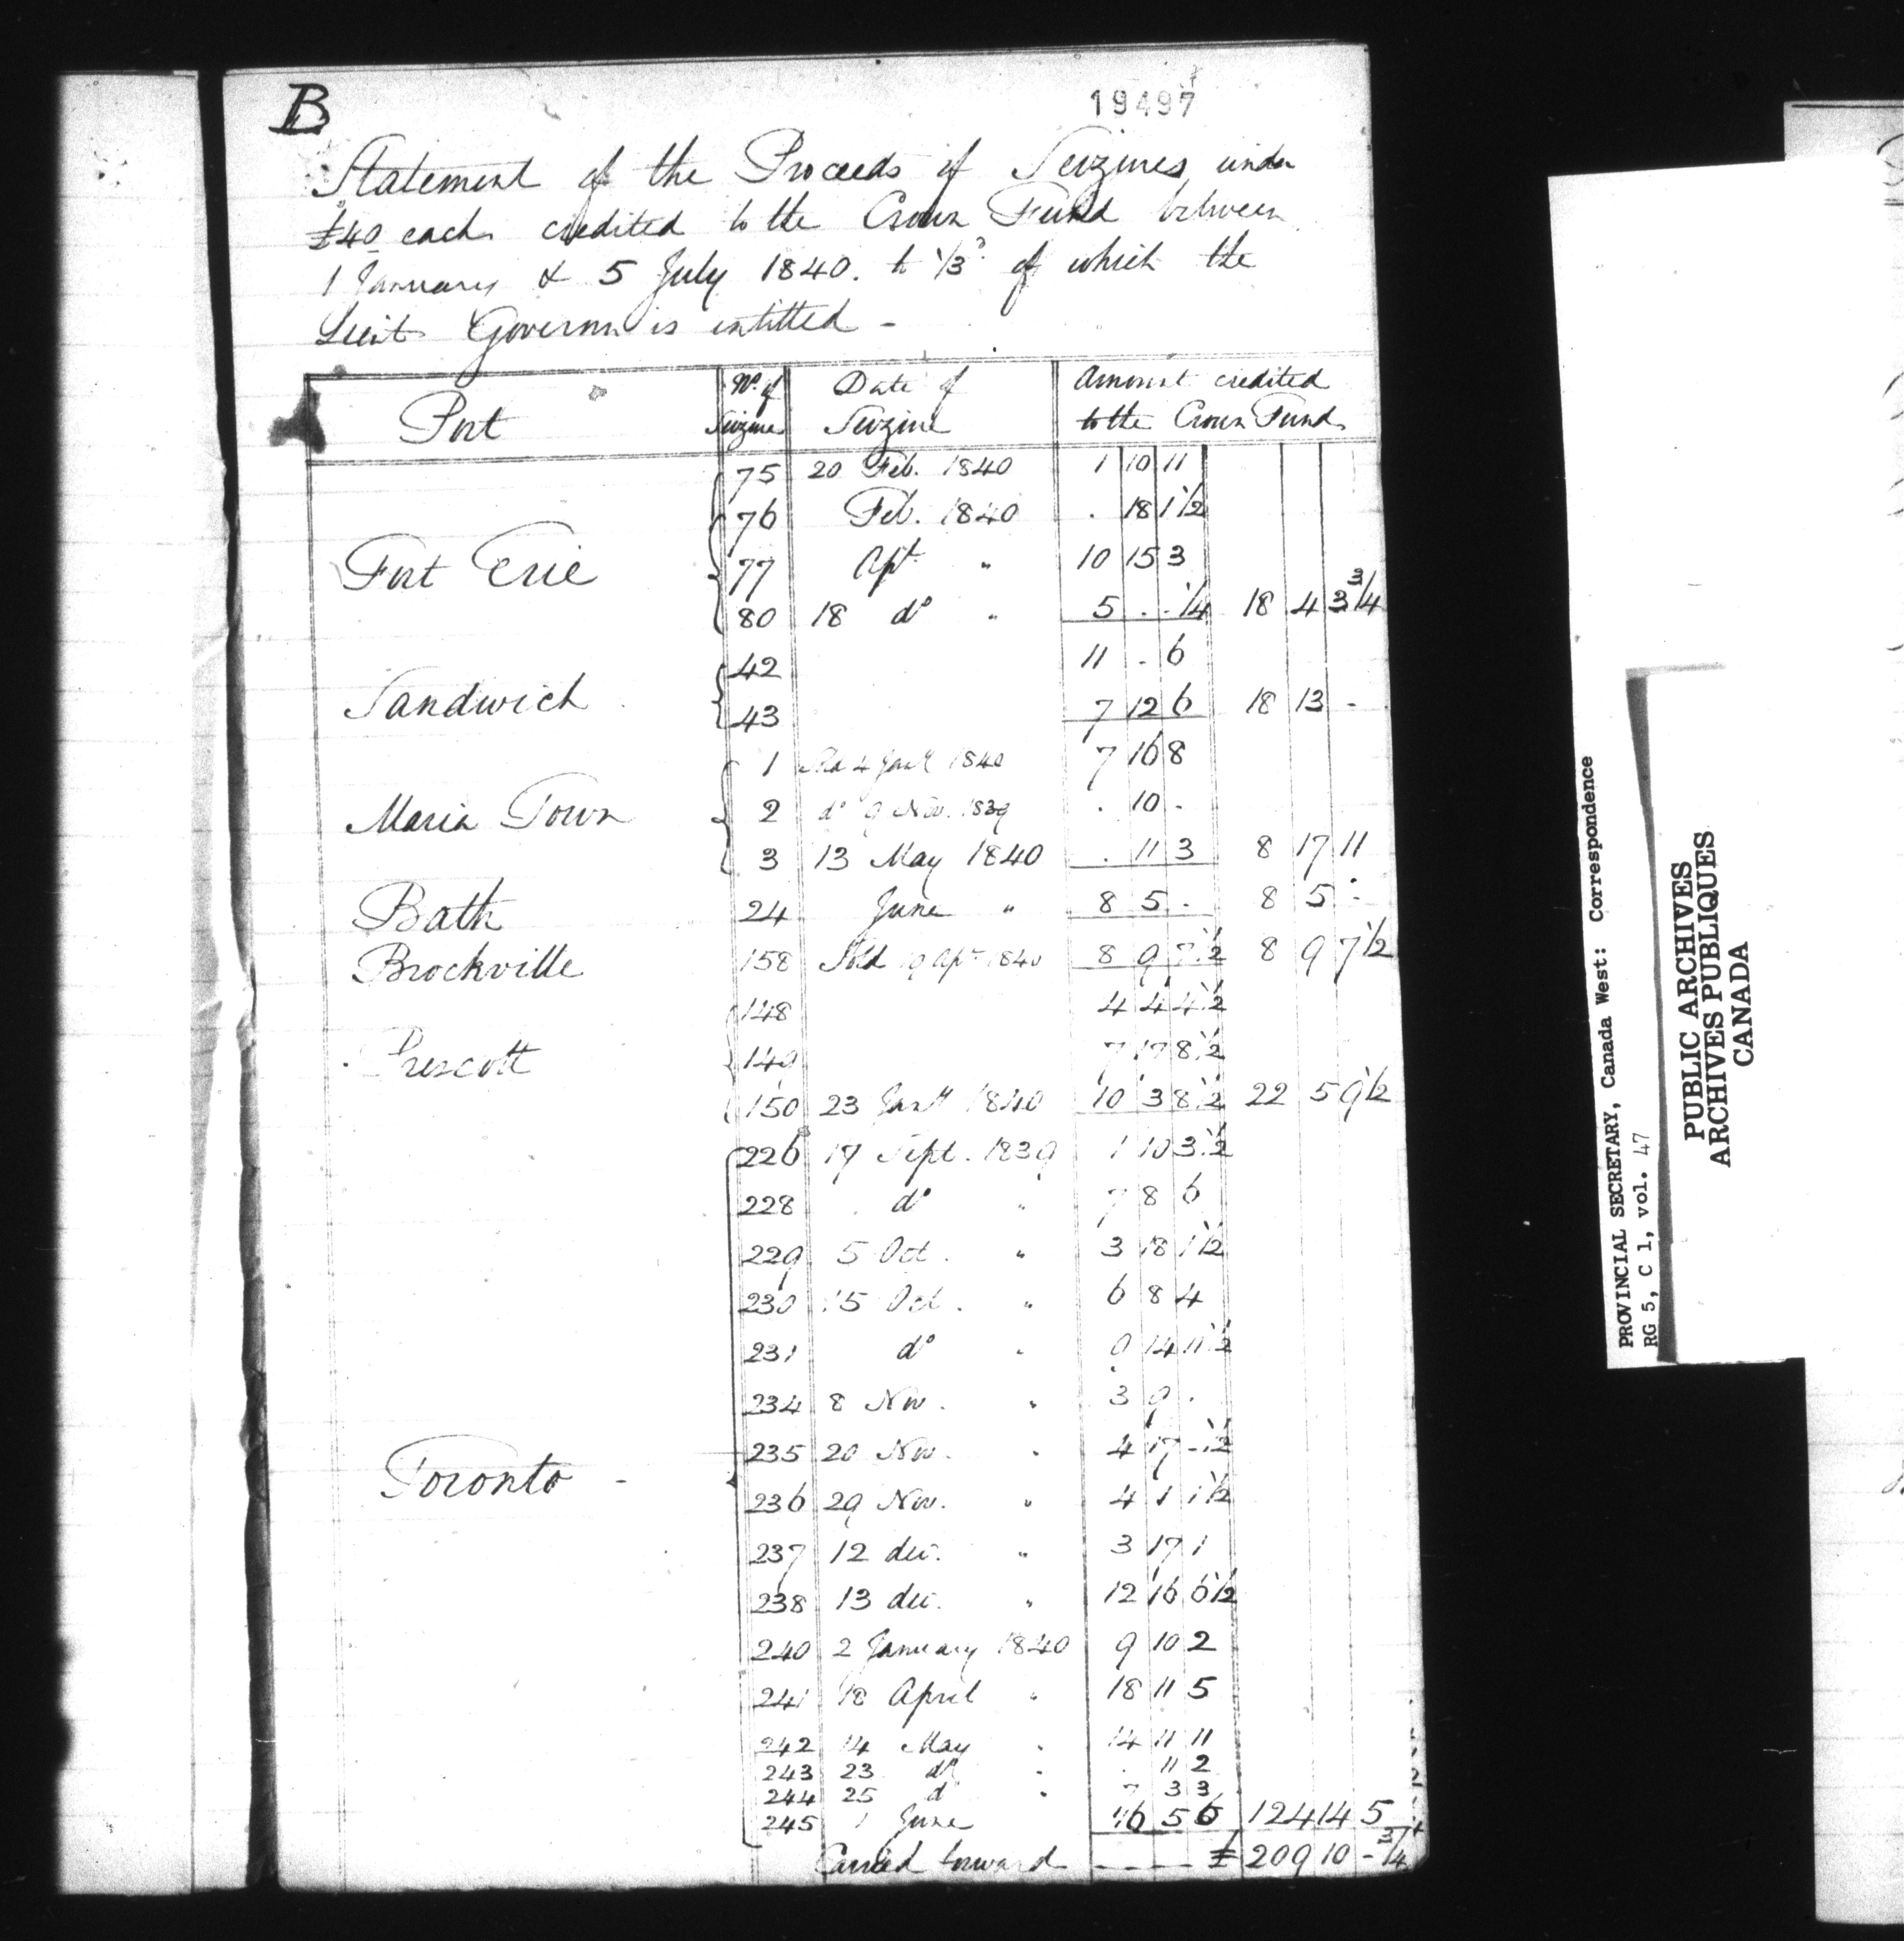 B
19497
Statement of the Proceeds of Seizures under
£40 each credited to the Crown Fund between
1 January & 5 July 1840. to 1/3d of which the
Lieut Governor is intitled -
Port | No. of Seizure | Date of Seizure | Amount credited to the Crown Fund
75 20 Feb. 1840 1 10 11
76 Feb. 1840 . 18 1 1/2
Fort Erie 77 Apl. " 10 15 3
80 18 do " 5 . . 1/4 18 4 3 3/4
42 11 . 6
Sandwich 43 7 12 6 18 13 -
1 Sold 4 Jany 1840 7 16 8
Maria Town 2 do 9 Nov. 1839 . 10 .
3 13 May 1840 . 11 3 8 17 11
Bath 24 June " 8 5 . 8 5 -
Brockville 158 Sold 9 Apl 1840 8 9 7 1/2 8 9 7 1/2
148 4 4 4 1/2
Prescott 149 7 17 8 1/2
150 23 Jany 1840 10 3 8 1/2 22 5 9 1/2
226 17 Sept. 1839 1 10 3 1/2
228 do " 7 8 6
229 5 Oct. " 3 18 1 1/2
230 15 Oct. " 6 8 4
231 do " 9 14 11 1/2
234 8 Nov. " 3 9 .
235 20 Nov. " 4 17 - 1/2
Toronto - 236 29 Nov. " 4 1 1 1/2
237 12 dec. " 3 17 1
238 13 dec. " 12 16 6 1/2
240 2 January 1840 9 10 2
241 18 April " 18 11 5
242 14 May " 14 11 11
243 23 do " . 11 2
244 25 d " 7 3 3
245 1 June 16 5 6 124 14 5
Carried forward £ 209 10 - 3/4
PROVINCIAL SECRETARY, Canada West: Correspondence
RG 5, C 1, vol. 47
PUBLIC ARCHIVES
ARCHIVES PUBLIQUES
CANADA